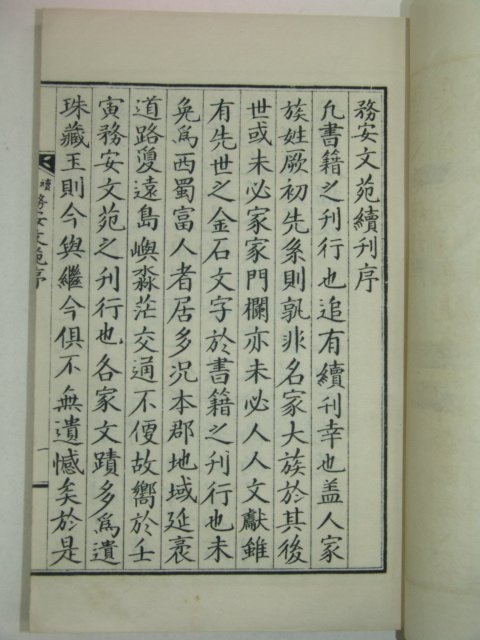 務安文苑續刊序
凢書籍之刊行也追有續刊幸也盖人家
族姓厥初先系則孰非名家大族於其後
世或未必家家門欄亦未必人人文獻雖
有先世之金石文字於書籍之刊行也未
免爲西蜀富人者居多况本郡地域延袤
道路夐遠島嶼淼茫交通不便故嚮於壬
寅務安文苑之刊行也各家文蹟多爲遺
珠藏玉則今與繼今俱不無遺憾矣於是
續務安文苑序
一